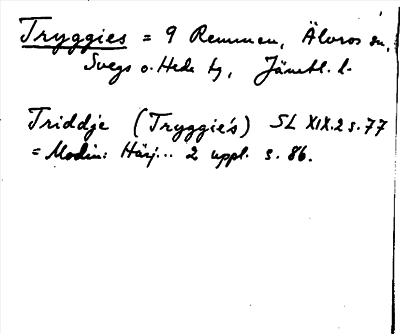 Tryggies = 9 Remmen, Älvros sn,
Svegs o. Hede tg, Jämtl. l.
Triddje (Tryggie's) SL XIX.2 s. 77
= Modin: Härj... 2 uppl. s. 86.